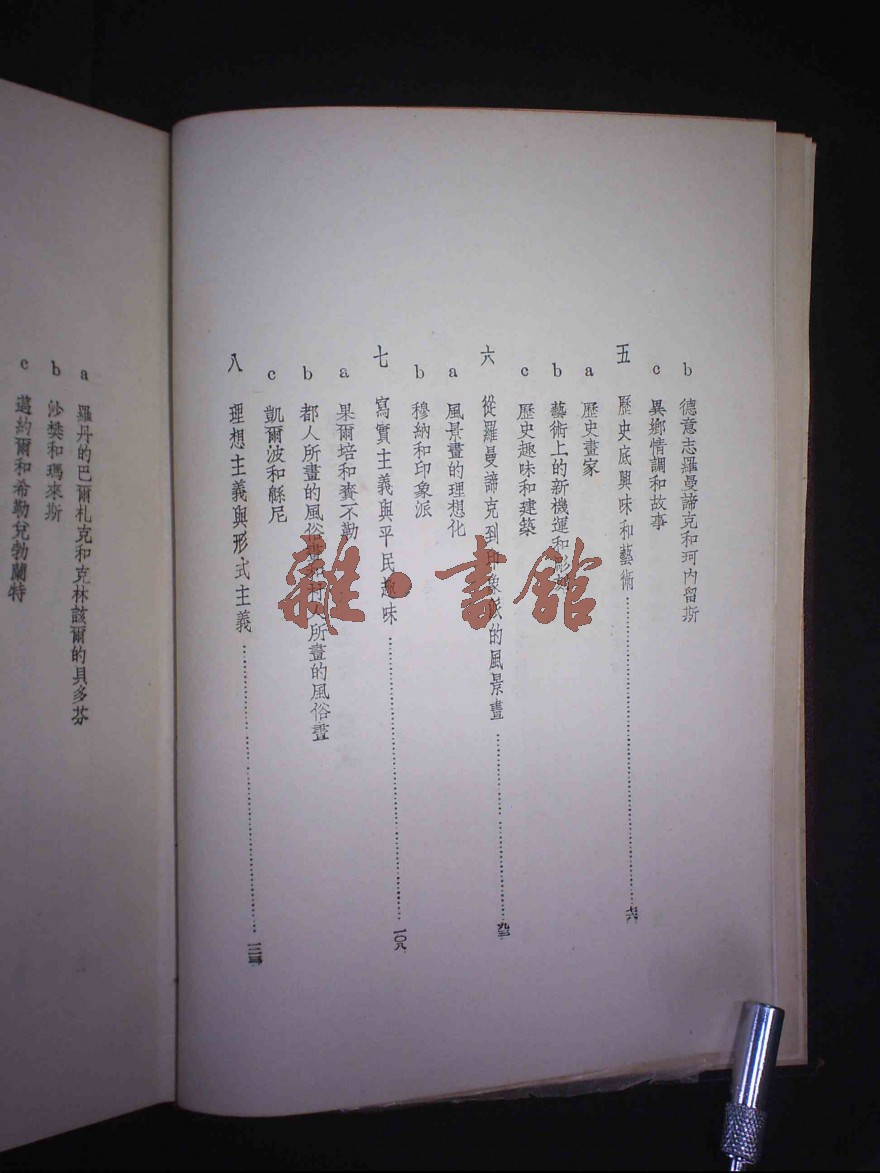 b 德意志羅曼諦克和珂內留斯
c 異鄉情調和故事
五 歷史底興味和藝術……七六
a 歷史畫家
b 藝術上的新機運和
c 歷史趣味和建築
六 從羅曼諦克到印象派的風景畫……九三
a 風景畫的理想化
b 穆納和印象派
七 寫實主義與平民趣味……一〇八
a 果爾培和賚不勒
b 都人所畫的風俗畫和村人所畫的風俗畫
c 凱爾波和緜尼
八 理想主義與形式主義……
a 羅丹的巴爾札克和克林該爾的貝多芬
b 沙樊和瑪來斯
c 邁約爾和希勒兌勃蘭特
雜·書館